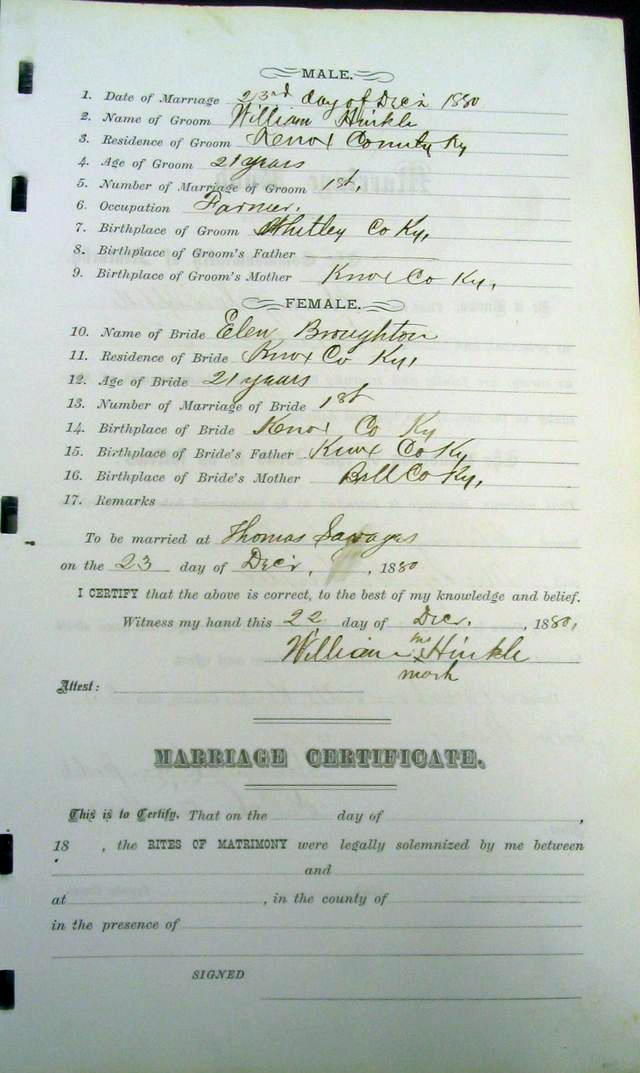 MALE.
1. Date of Marriage 23rd day of Dec'r 1880
2. Name of Groom William Hinkle
3. Residence of Groom Knox County Ky
4. Age of Groom 21 years
5. Number of Marriage of Groom 1st,
6. Occupation Farmer.
7. Birthplace of Groom Whitley Co Ky,
8. Birthplace of Groom's Father
9. Birthplace of Groom's Mother Knox Co Ky,
FEMALE.
10. Name of Bride Elen Broughton
11. Residence of Bride Knox Co Ky,
12. Age of Bride 21 years
13. Number of Marriage of Bride 1st
14. Birthplace of Bride Knox Co Ky
15. Birthplace of Bride's Father Knox Co Ky
16. Birthplace of Bride's Mother Bell Co Ky,
17. Remarks
To be married at Thomas
on the 23 day of Dec'r, , 1880
I CERTIFY that the above is correct, to the best of my knowledge and belief.
Witness my hand this 22 day of Decr. , 1880,
William his x Hinkle
mark
Attest:
MARRIAGE CERTIFICATE.
This is to Certify, That on the day of ,
18 , the RITES OF MATRIMONY were legally solemnized by me between
and
at , in the county of
in the presence of
SIGNED